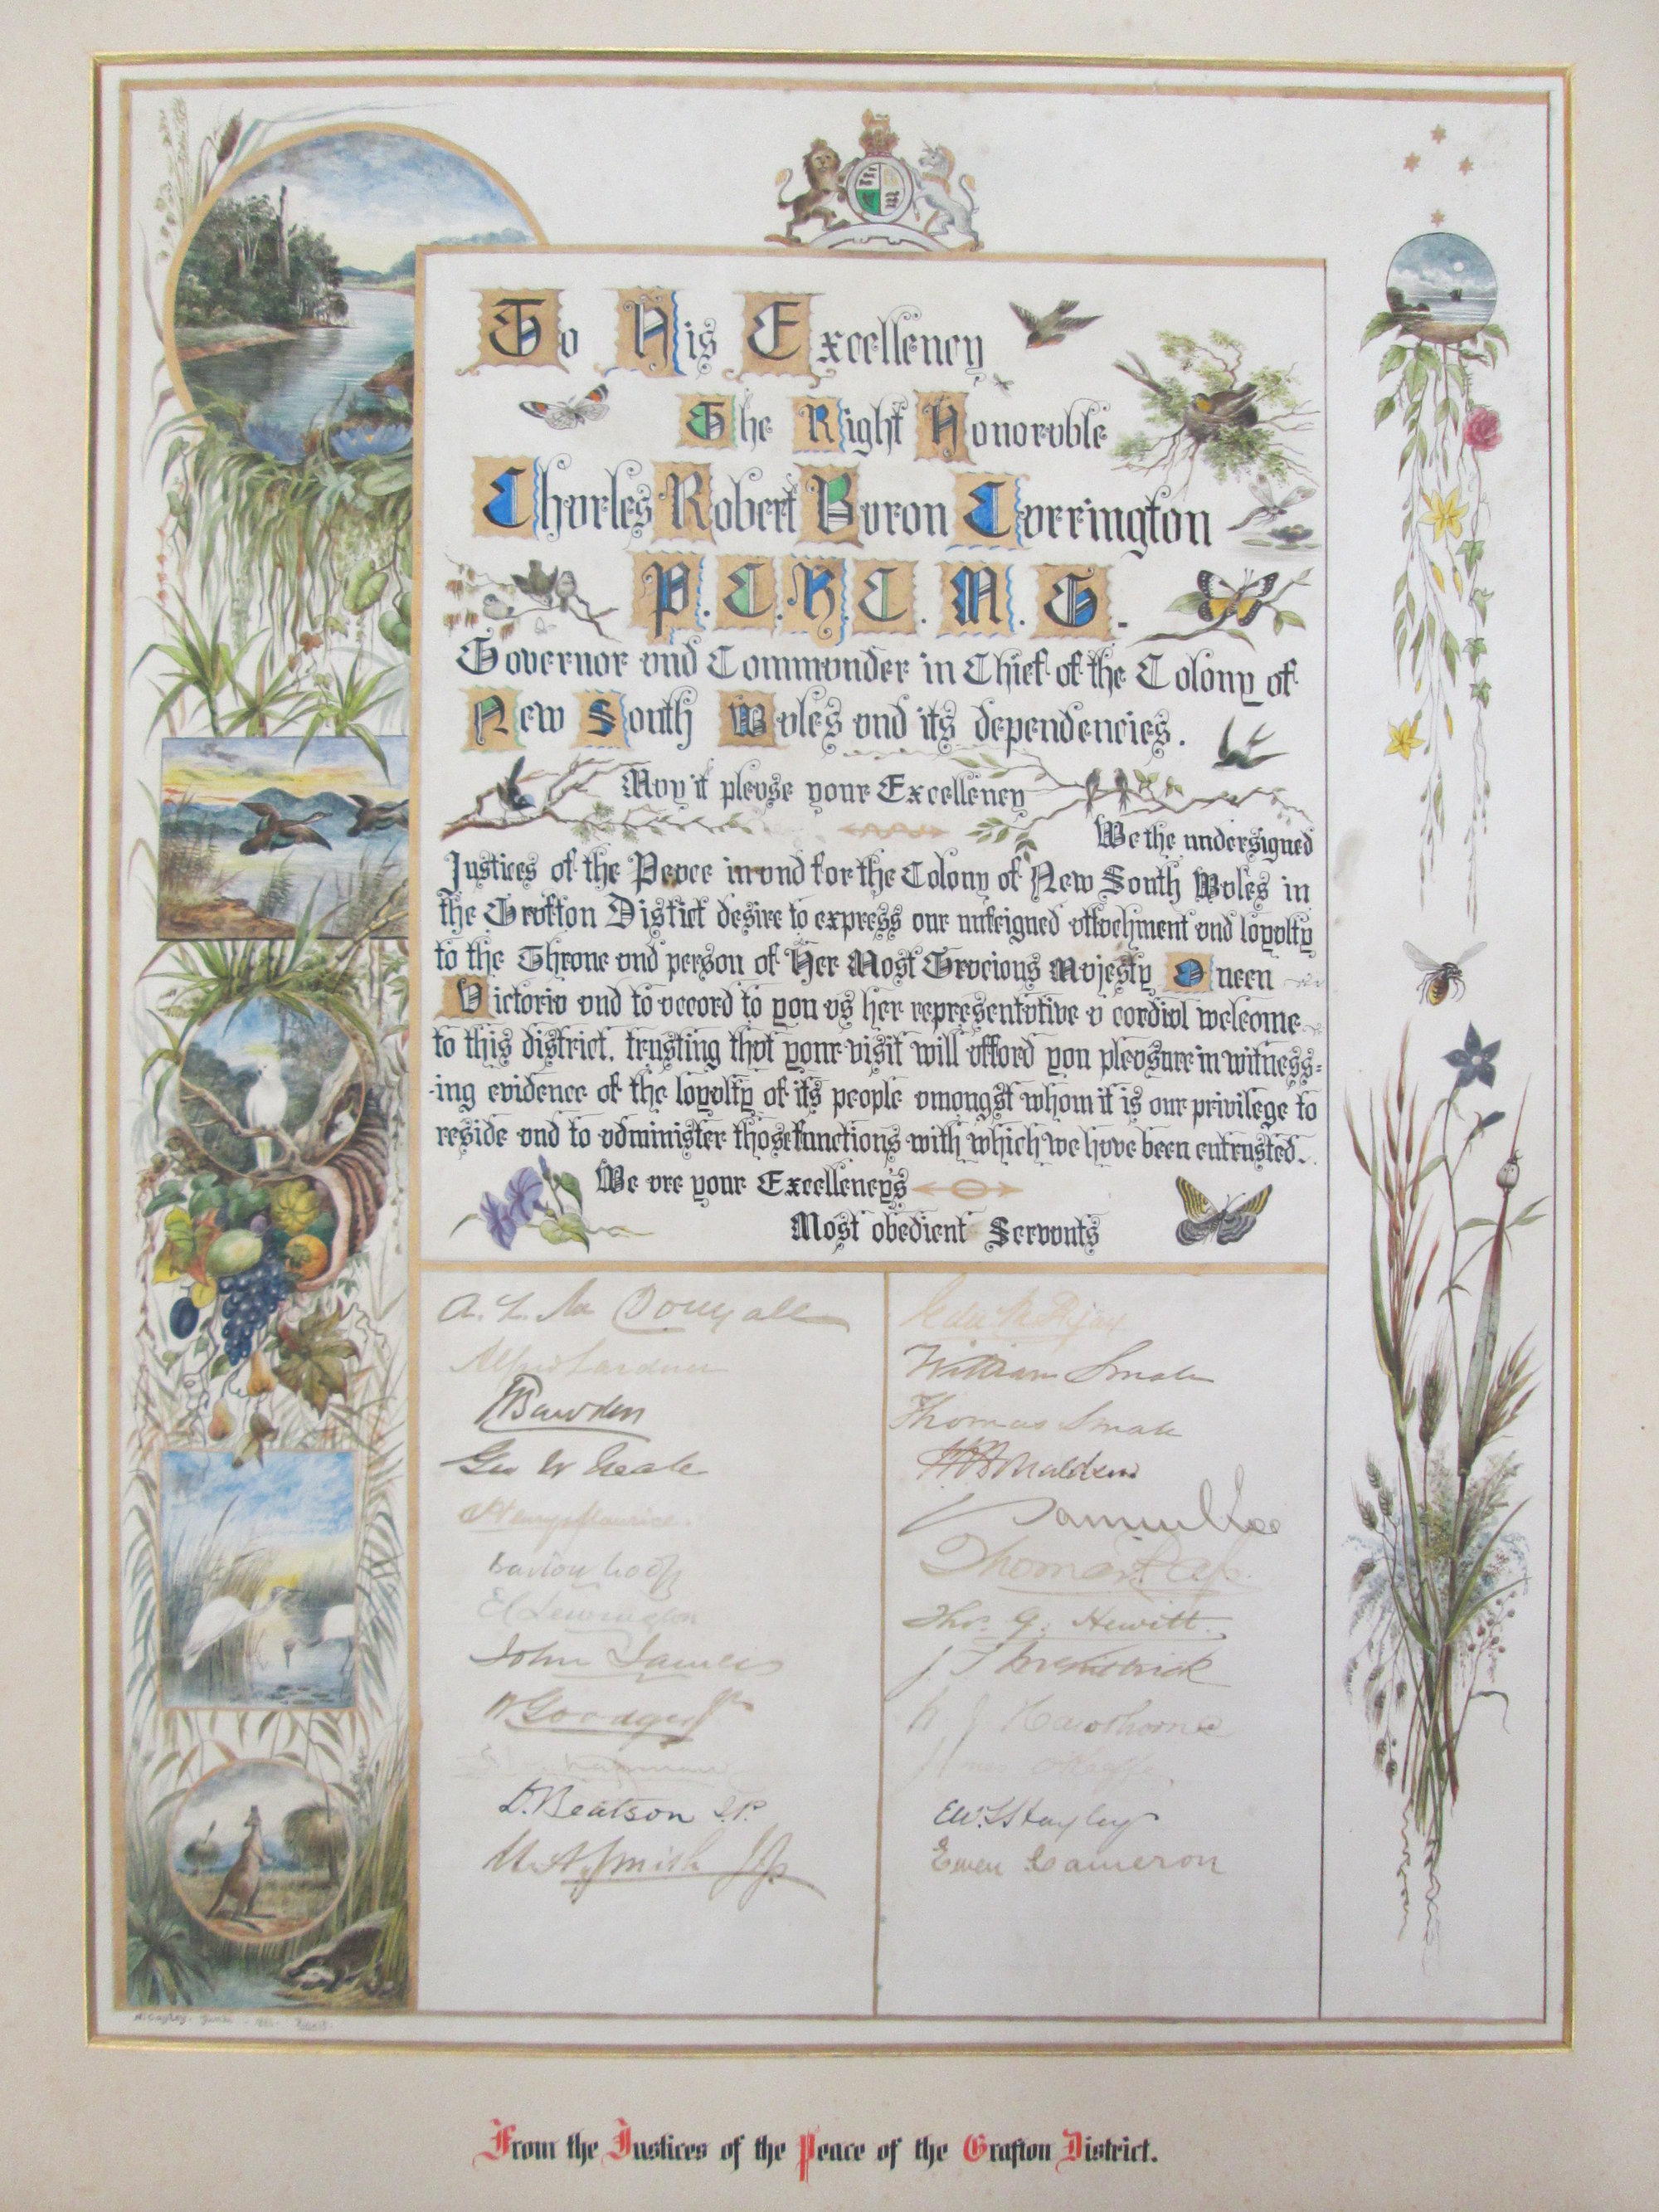 To His Excellency
The Right Honorable
Charles Robert Baron Carrington
P.C.K.C.M.G.
Governor and Commander in Chief of the Colony of
New South Wales and its dependencies.
May it please your Excellency
We the undersigned
Justices of the Peace in and for the Colony of New South Wales in
the Grafton Distict desire to express our unfeigned attachment and loyalty
to the Throne and person of Her Most Gracious Majesty Queen
Victoria and to accord to you as her representative a cordial welcome
to this district, trusting that your visit will afford you pleasure in witness-
-ing evidence of the loyalty of its people amongst whom it is our privilege to
reside and to administer those functions with which we have been entrusted.
We are your Excellency's
Most obedient Servants
A. L. McDougall
Alfred Lardner
Bawden
Geo W
Henry Maurice
John James
D. Beatson J.P.
Smith JP
William Small
Thomas Small
Samuel Lee
Thomas
Thos. G. Hewitt.
J
Hawthorne
O'Keeffe
Hayley
Ewen Cameron
From the Justices of the Peace of the Grafton District.